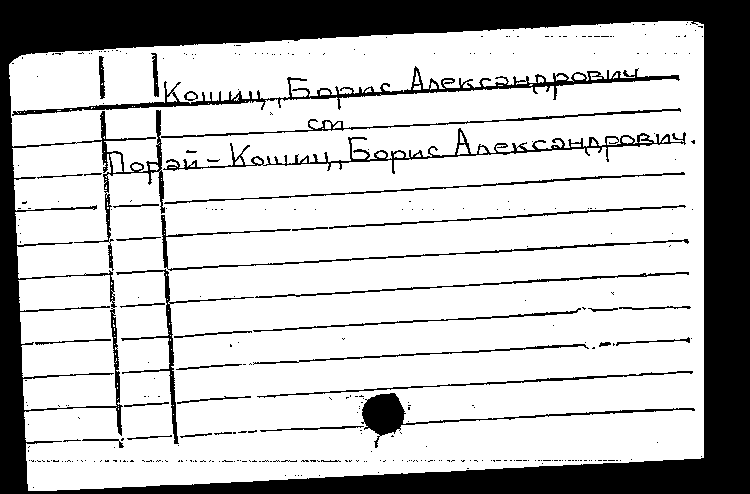 Кошиц, Борис Александрович
см.
Порай-Кошиц, Борис Александрович.